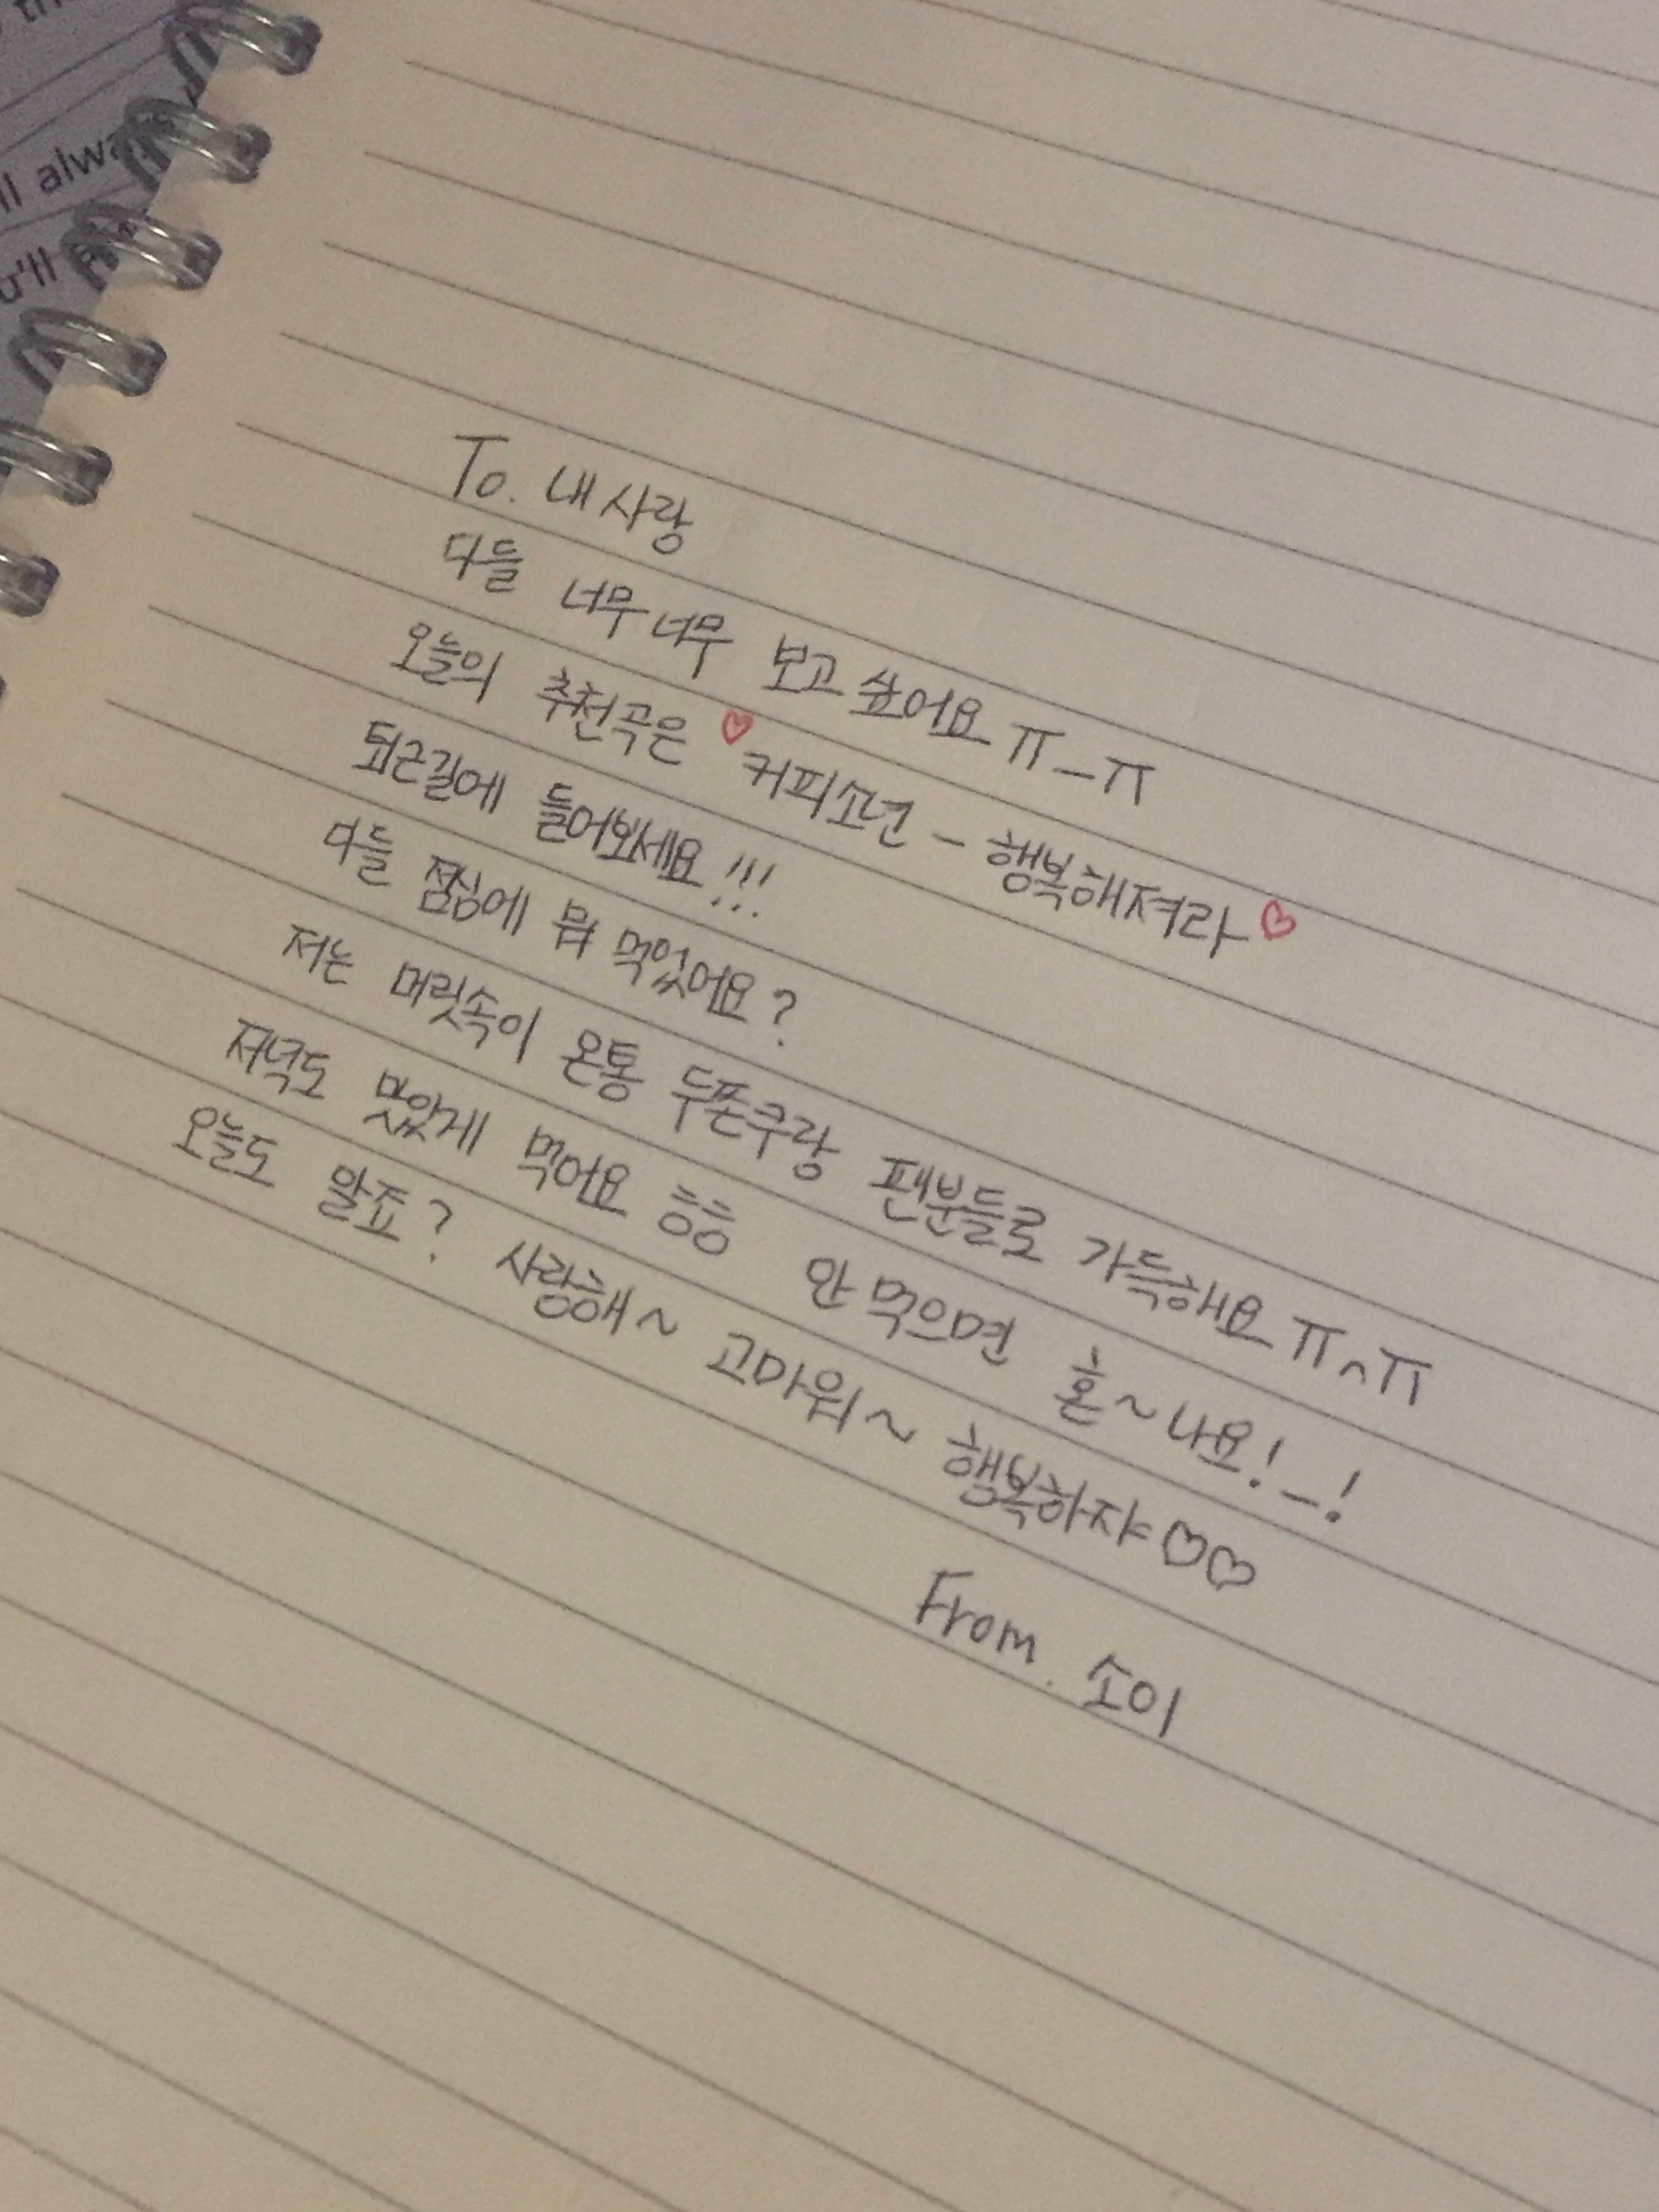 ll always
u'll al
To. 내 사랑
다들 너무 너무 보고 싶어요 ㅠ_ㅠ
오늘의 추천곡은 ♡커피소년 - 행복해져라♡
퇴근길에 들어보세요!!!
다들 점심에 뭐 먹었어요?
저는 머릿속이 온통 두쫀쿠랑 팬분들로 가득해요 ㅠ^ㅠ
저녁도 맛있게 먹어요 흥흥 안 먹으면 혼~나요!_!
오늘도 알죠? 사랑해~ 고마워~ 행복하쟈♡♡
From. 소이